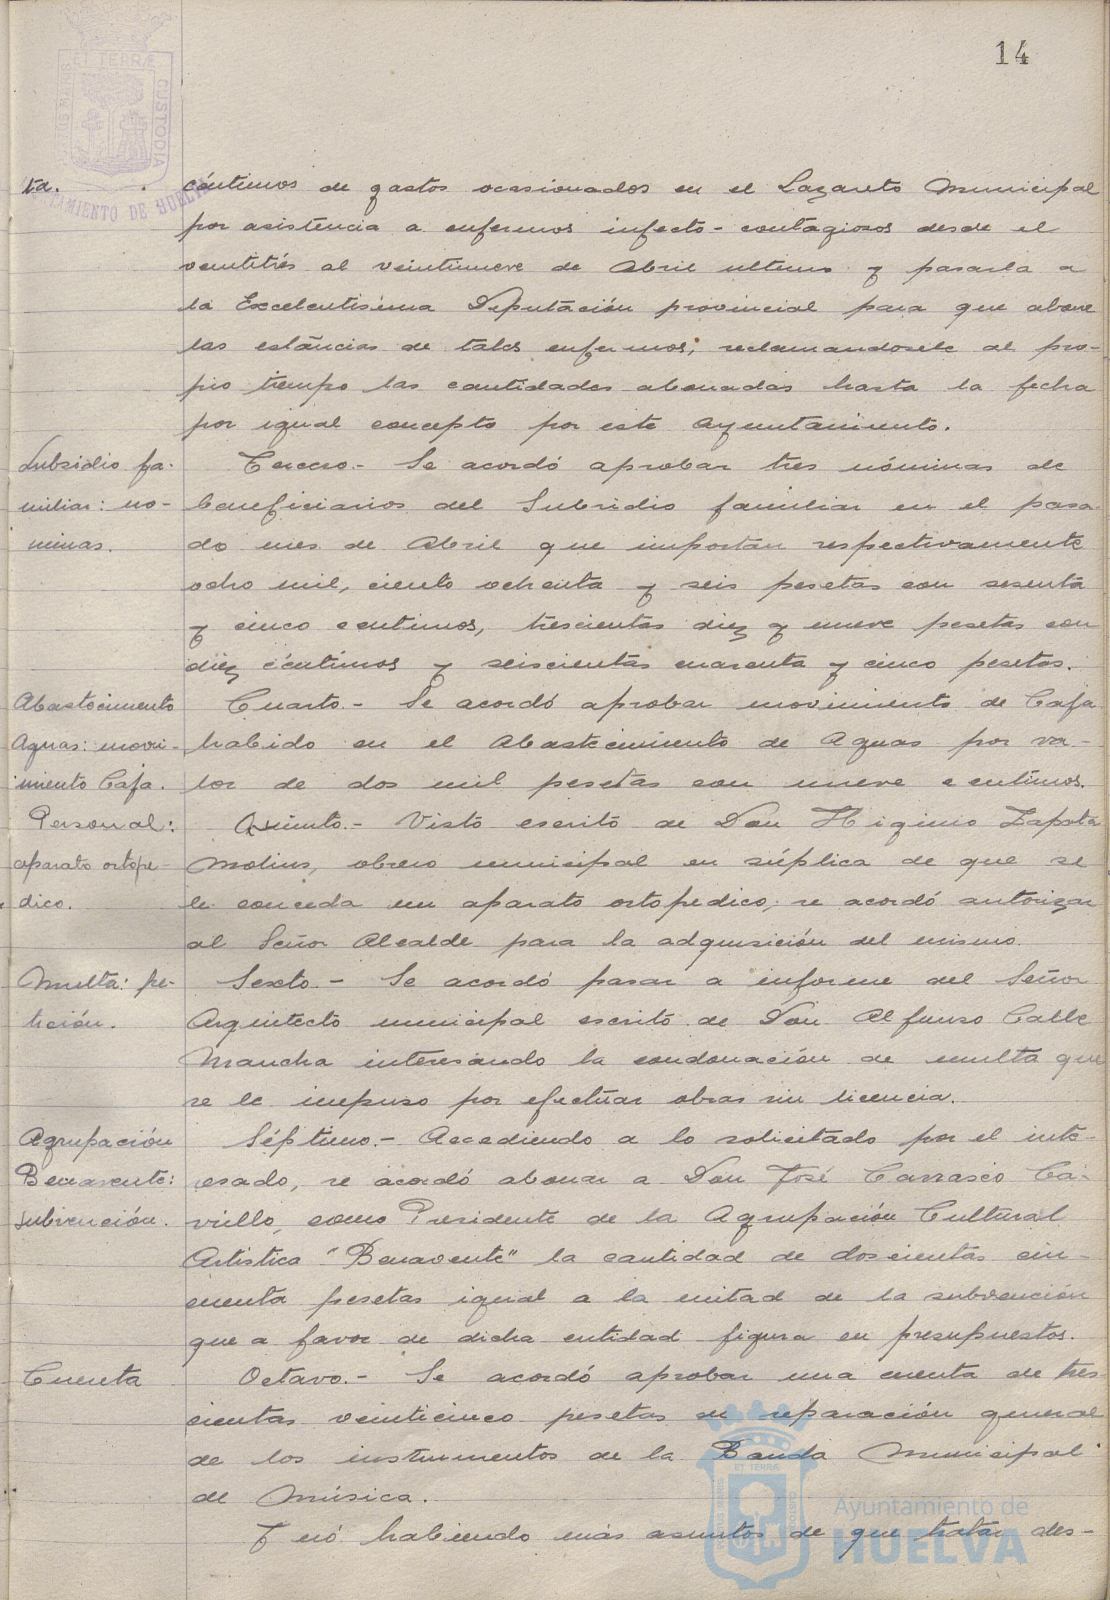 14
ET TERRÆ
CUSTODIA
AYUNTAMIENTO DE HUELVA
ta. céntimos de gastos ocasionados en el Lazareto Municipal
por asistencia a enfermos infecto-contagiosos desde el
ventitrés al veintinueve de Abril ultimo y pasarla a
la Excelentisima Diputación provincial para que abone
las estancias de tales enfermos; reclamandosele al pro-
pio tiempo las cantidades abonadas hasta la fecha
por igual concepto por este Ayuntamiento.
Subsidio fa- Tercero.- Se acordó aprobar tres nóminas de
miliar: nó- beneficiarios del Subsidio familiar en el pasa-
minas. do mes de Abril que importan respectivamente
ocho mil, ciento ochenta y seis pesetas con sesenta
y cinco centimos, trescientas diez y nueve pesetas con
diez céntimos y seiscientas cuarenta y cinco pesetas.
Abastecimiento Cuarto.- Se acordó aprobar movimiento de Caja
Aguas: movi- habido en el Abastecimiento de Aguas por va-
miento Caja. lor de dos mil pesetas con nueve centimos.
Personal: Quinto.- Visto escrito de Don Higinio Zapata
aparato ortope- Molins, obrero municipal en súplica de que se
dico. le conceda un aparato ortopedico; se acordó autorizar
al Señor Alcalde para la adquisición del mismo.
Multa: pe- Sexto.- Se acordó pasar a informe del Señor
tición. Arquitecto municipal escrito de Don Alfonso Calle
Mancha interesando la condonación de multa que
se le impuso por efectuar obras sin licencia.
Agrupación Séptimo.- Accediendo a lo solicitado por el inte-
Benavente: resado, se acordó abonar a Don José Carrasco Ca-
subvención. rrillo, como Presidente de la Agrupación Cultural
Artística "Benavente" la cantidad de doscientas cin-
cuenta pesetas igual a la mitad de la subvención
que a favor de dicha entidad figura en presupuestos.
Cuenta Octavo.- Se acordó aprobar una cuenta de tres
cientas veinticinco pesetas en reparación general
de los instrumentos de la Banda Municipal
de Música.
Y nó habiendo más asuntos de que tratar des-
ET TERRÆ
Ayuntamiento de
HUELVA